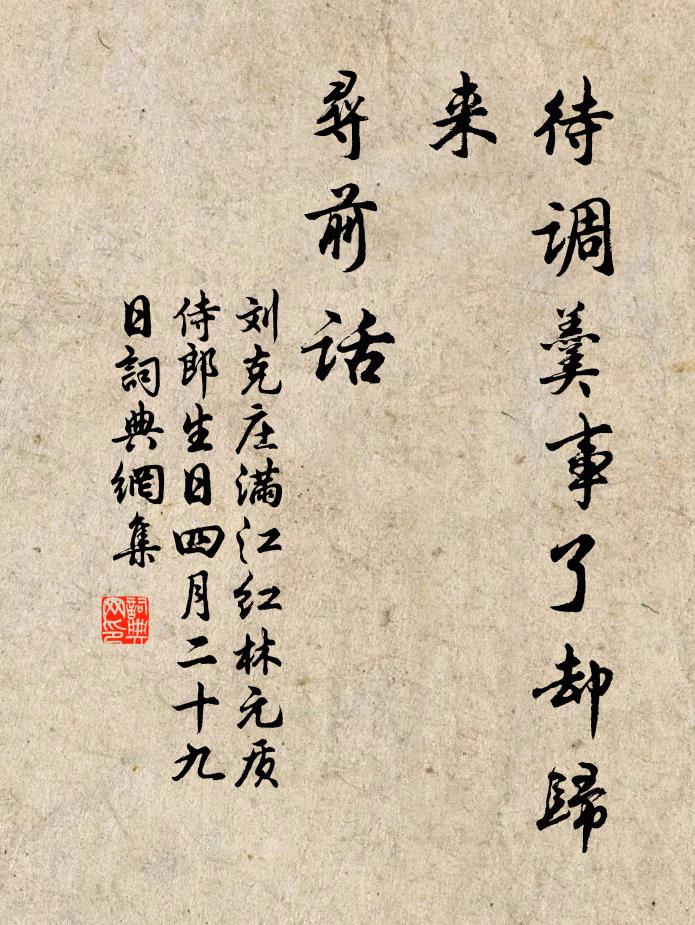 待调羹事了却歸
来
尋前话
刘克庄满江红林元质
侍郎生日四月二十九
日詞典網集
詞典网印